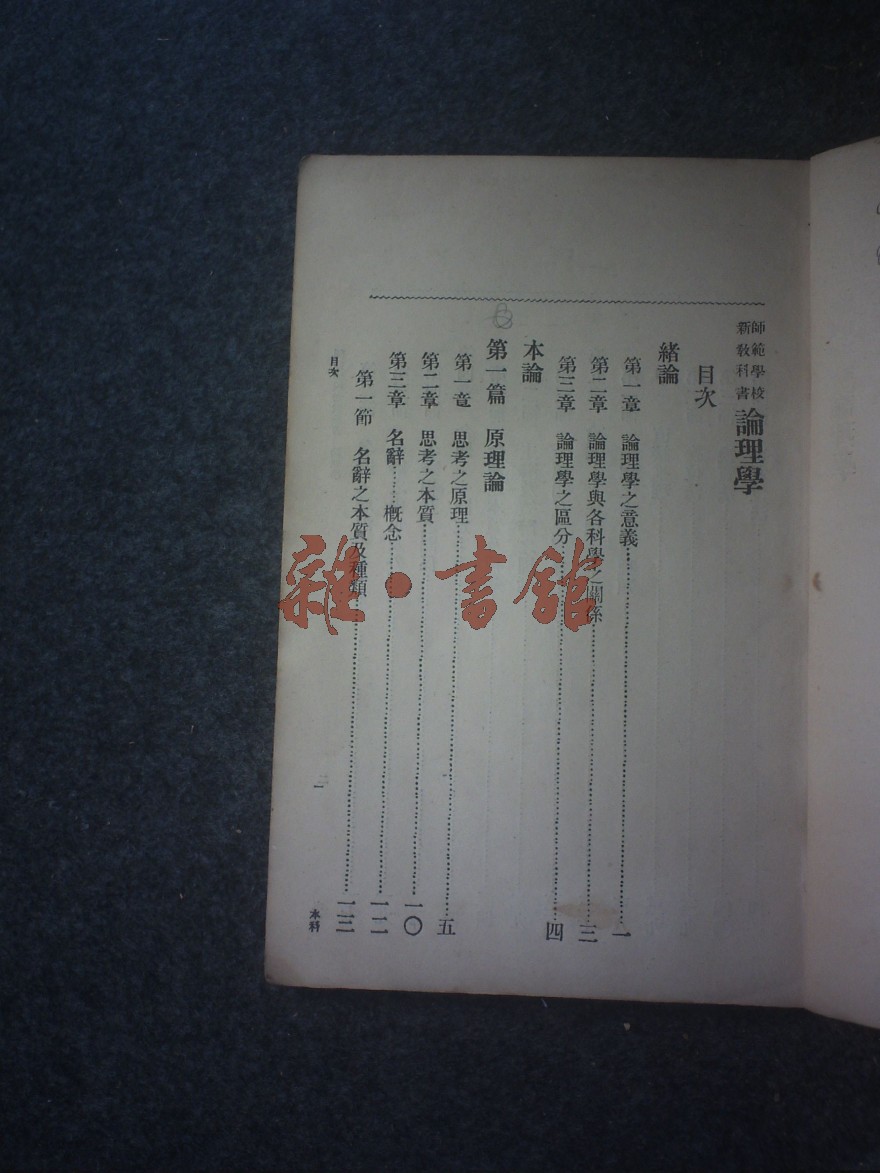 師範學校
新教科書
論理學
目次
緒論
第一章 論理學之意義……一
第二章 論理學與各科學之關係……三
第三章 論理學之區分……四
本論
第一篇 原理論
第一章 思考之原理……五
第二章 思考之本質……一〇
第三章 名辭……概念……一二
第一節 名辭之本質及種類……一三
目次
一
本科
雜·書館